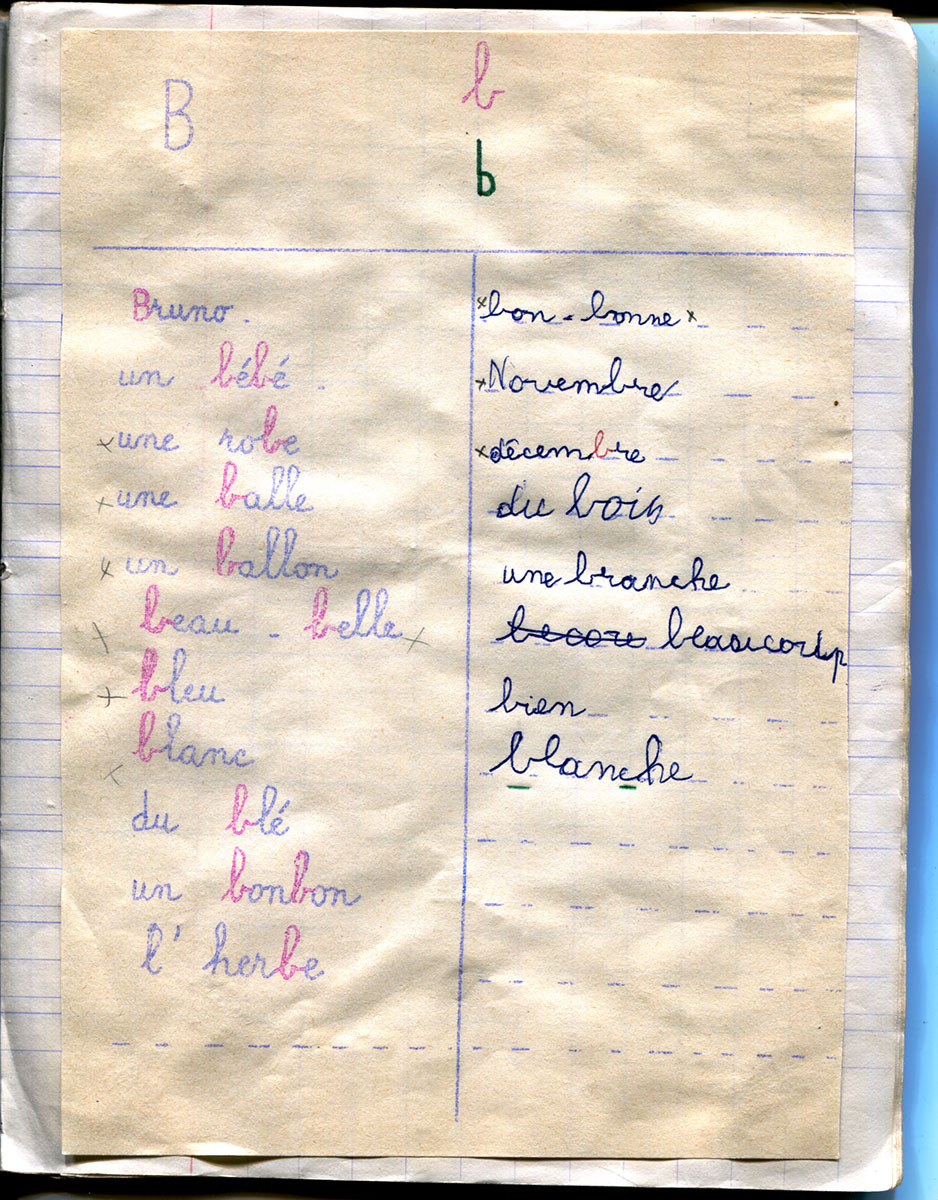 B b
b
Bruno.
un bébé.
une robe
une balle
un ballon
beau - belle
bleu
blanc
du blé
un bonbon
l'herbe
bon - bonne
Novembre
décembre
du bois
une branche
beaucoup
bien
blanche